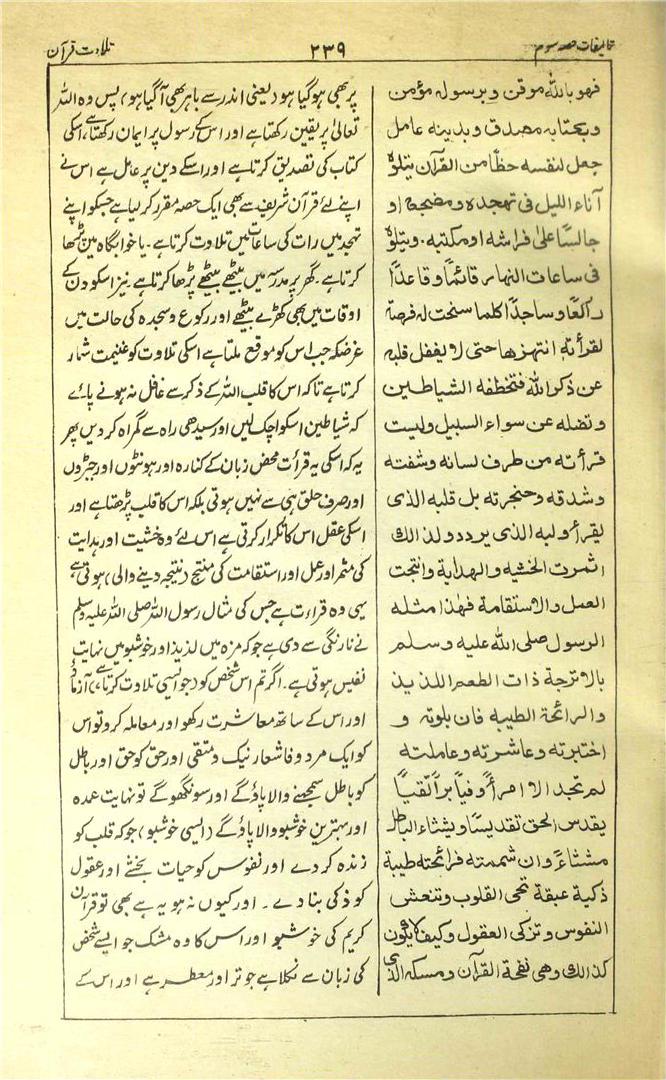 تالیفات حصہ سوم
۲۳۹
تلاوت قرآن
فهو بالله موقن وبرسوله مؤمن
وبكتابه مصدق وبدينه عامل
جعل لنفسه حظا من القرآن يتلوه
آناء الليل فى تهجده ومضجعه او
جالسًا علىٰ فراشه او مكتبته. ويتلوه
فى ساعات النهار قائمًا وقاعدًا
راكعًا وساجدًا كلما سنحت له فرصة
لقرأته انتهزها حتى لا يغفل قلبه
عن ذكر الله فتخطفه الشياطين
وتضله عن سواء السبيل وليست
قرأته من طرف لسانه وشفته
وشدقه وحنجرته بل قلبه الذى
يقرأ ولبه الذى يردد ولذالك
اثمرت الخشيه والهداية وانتجت
العمل والاستقامة فهٰذا مثله
الرسول صلى الله عليه وسلم
بالاترجة ذات الطعم اللذيذ
والرائحة الطيبه فان بلوته و
اختبرته وعاشرته وعاملته
لم تجد الا امرأ وفيًا برًا تقيًا
يقدس الحق تقديسًا ويشناء الباطل
مشناءً وان شممته فرائحته طيبة
ذكية عبقة تحى القلوب وتنعش
النفوس وتزكى العقول وكيف لا يكون
كذالك وهى نفحة القرآن ومسكه الذى
پر بھی ہو گیا ہو (یعنی اندر سے باہر بھی آ گیا ہو) پس وہ اللہ
تعالیٰ پر یقین رکھتا ہے اور اس کے رسول پر ایمان رکھتا ہے، اسکی
کتاب کی تصدیق کرتا ہے اور اسکے دین پر عامل ہے اس نے
اپنے لئے قرآن شریف سے بھی ایک حصہ مقرر کر لیا ہے جسکو اپنے
تہجد میں رات کی ساعات میں تلاوت کرتا ہے۔ یا خوابگاہ میں پڑھا
کرتا ہے۔ گھر پر مدرسہ میں بیٹھے بیٹھے پڑھا کرتا ہے۔ نیز اسکو دن کے
اوقات میں بھی کھڑے بیٹھے اور رکوع و سجدہ کی حالت میں
غرضکہ جب اس کو موقع ملتا ہے اسکی تلاوت کو غنیمت شمار
کرتا ہے تاکہ اس کا قلب اللہ کے ذکر سے غافل نہ ہونے پائے
کہ شیاطین اسکو اچک لیں اور سیدھی راہ سے گمراہ کر دیں پھر
یہ کہ اسکی یہ قرأت محض زبان کے کنارہ اور ہونٹوں اور جبڑوں
اور صرف حلق ہی سے نہیں ہوتی بلکہ اس کا قلب پڑھتا ہے اور
اسکی عقل اس کا تکرار کرتی ہے اس لئے وہ خشیت اور ہدایت
کی مثمر اور عمل اور استقامت کی منتج (نتیجہ دینے والی) ہوتی ہے
یہی وہ قراءت ہے جس کی مثال رسول اللہ صلی اللہ علیہ وسلم
نے نارنگی سے دی ہے جو کہ مزہ میں لذیذ اور خوشبو میں نہایت
نفیس ہوتی ہے۔ اگر تم اس شخص کو (جو ایسی تلاوت کرتا ہے) آزماؤ
اور اس کے ساتھ معاشرت رکھو اور معاملہ کرو تو اس
کو ایک مرد وفا شعار نیک و متقی اور حق کو حق اور باطل
کو باطل سمجھنے والا پاؤ گے اور سونگھو گے تو نہایت عمدہ
اور بہترین خوشبو والا پاؤ گے (ایسی خوشبو) جو کہ قلب کو
زندہ کر دے اور نفوس کو حیات بخشے اور عقول
کو ذکی بنا دے ۔ اور کیوں نہ ہو یہ ہے بھی تو قرآن
کریم کی خوشبو اور اس کا وہ مشک جو ایسے شخص
کی زبان سے نکلا ہے جو تر اور معطر ہے اور اس کے